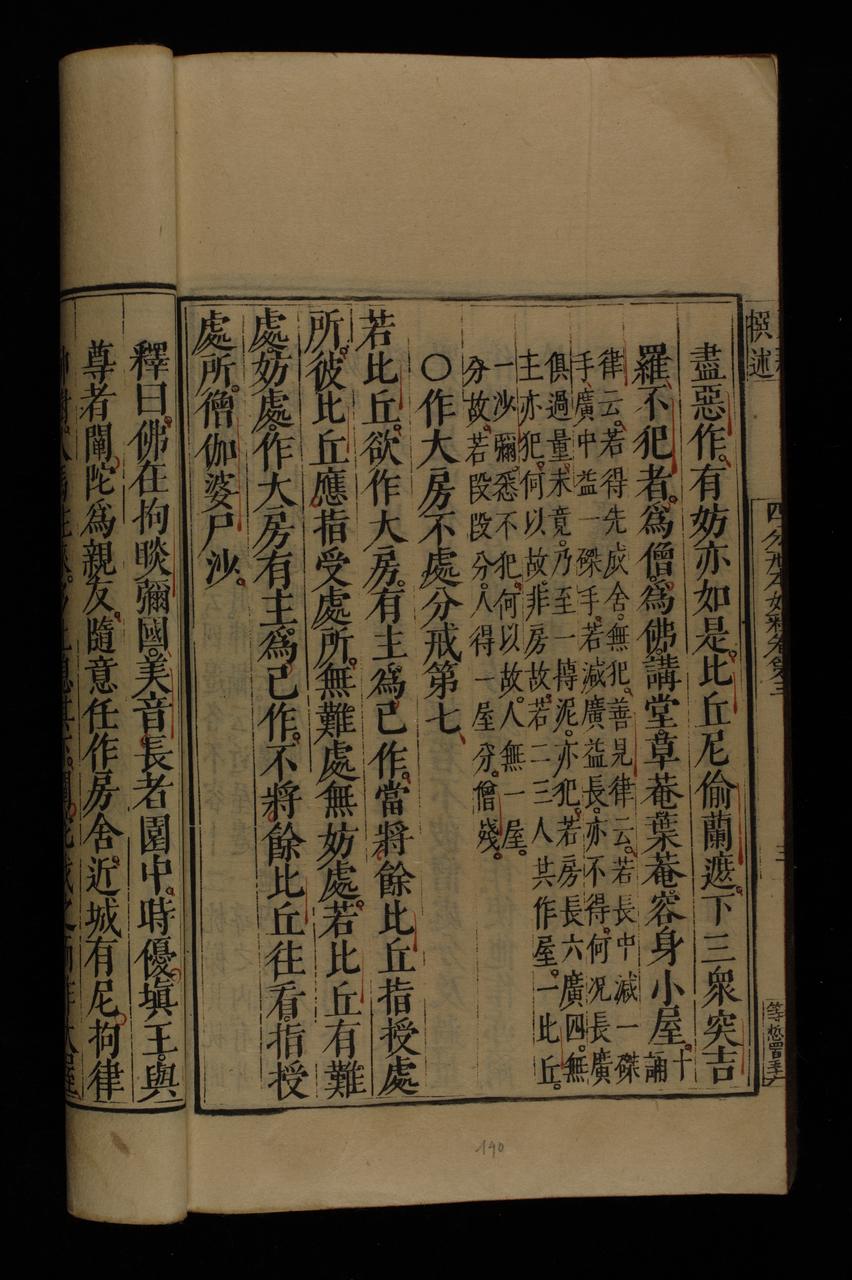 撰述
等慈
盡惡作。有妨亦如是。比丘尼偷蘭遮。下三眾突吉
羅。不犯者。為僧。為佛。講堂草菴葉菴。容身小屋。十誦
律云。若得先成舍。無犯。善見律云。若長中減一磔
手。廣中益一磔手。若減廣益長。亦不得。何况長廣
俱過量。未竟。乃至一摶泥。亦犯。若房長六廣四。無
主亦犯。何以故。非房故。若二三人共作屋。一比丘。
一沙彌。悉不犯。何以故。人無一屋。
分故。若段段分。人得一屋分。僧殘。
○作大房不處分戒第七、
若比丘。欲作大房。有主。為己作。當將餘比丘指授處
所。彼比丘應指受處所。無難處無妨處。若比丘有難
處妨處。作大房有主為己作。不將餘比丘往看。指授
處所。僧伽婆尸沙。
釋曰。佛在拘睒彌國。美音長者園中。時優填王。與
尊者闡陀為親友。隨意任作房舍。近城有尼拘律